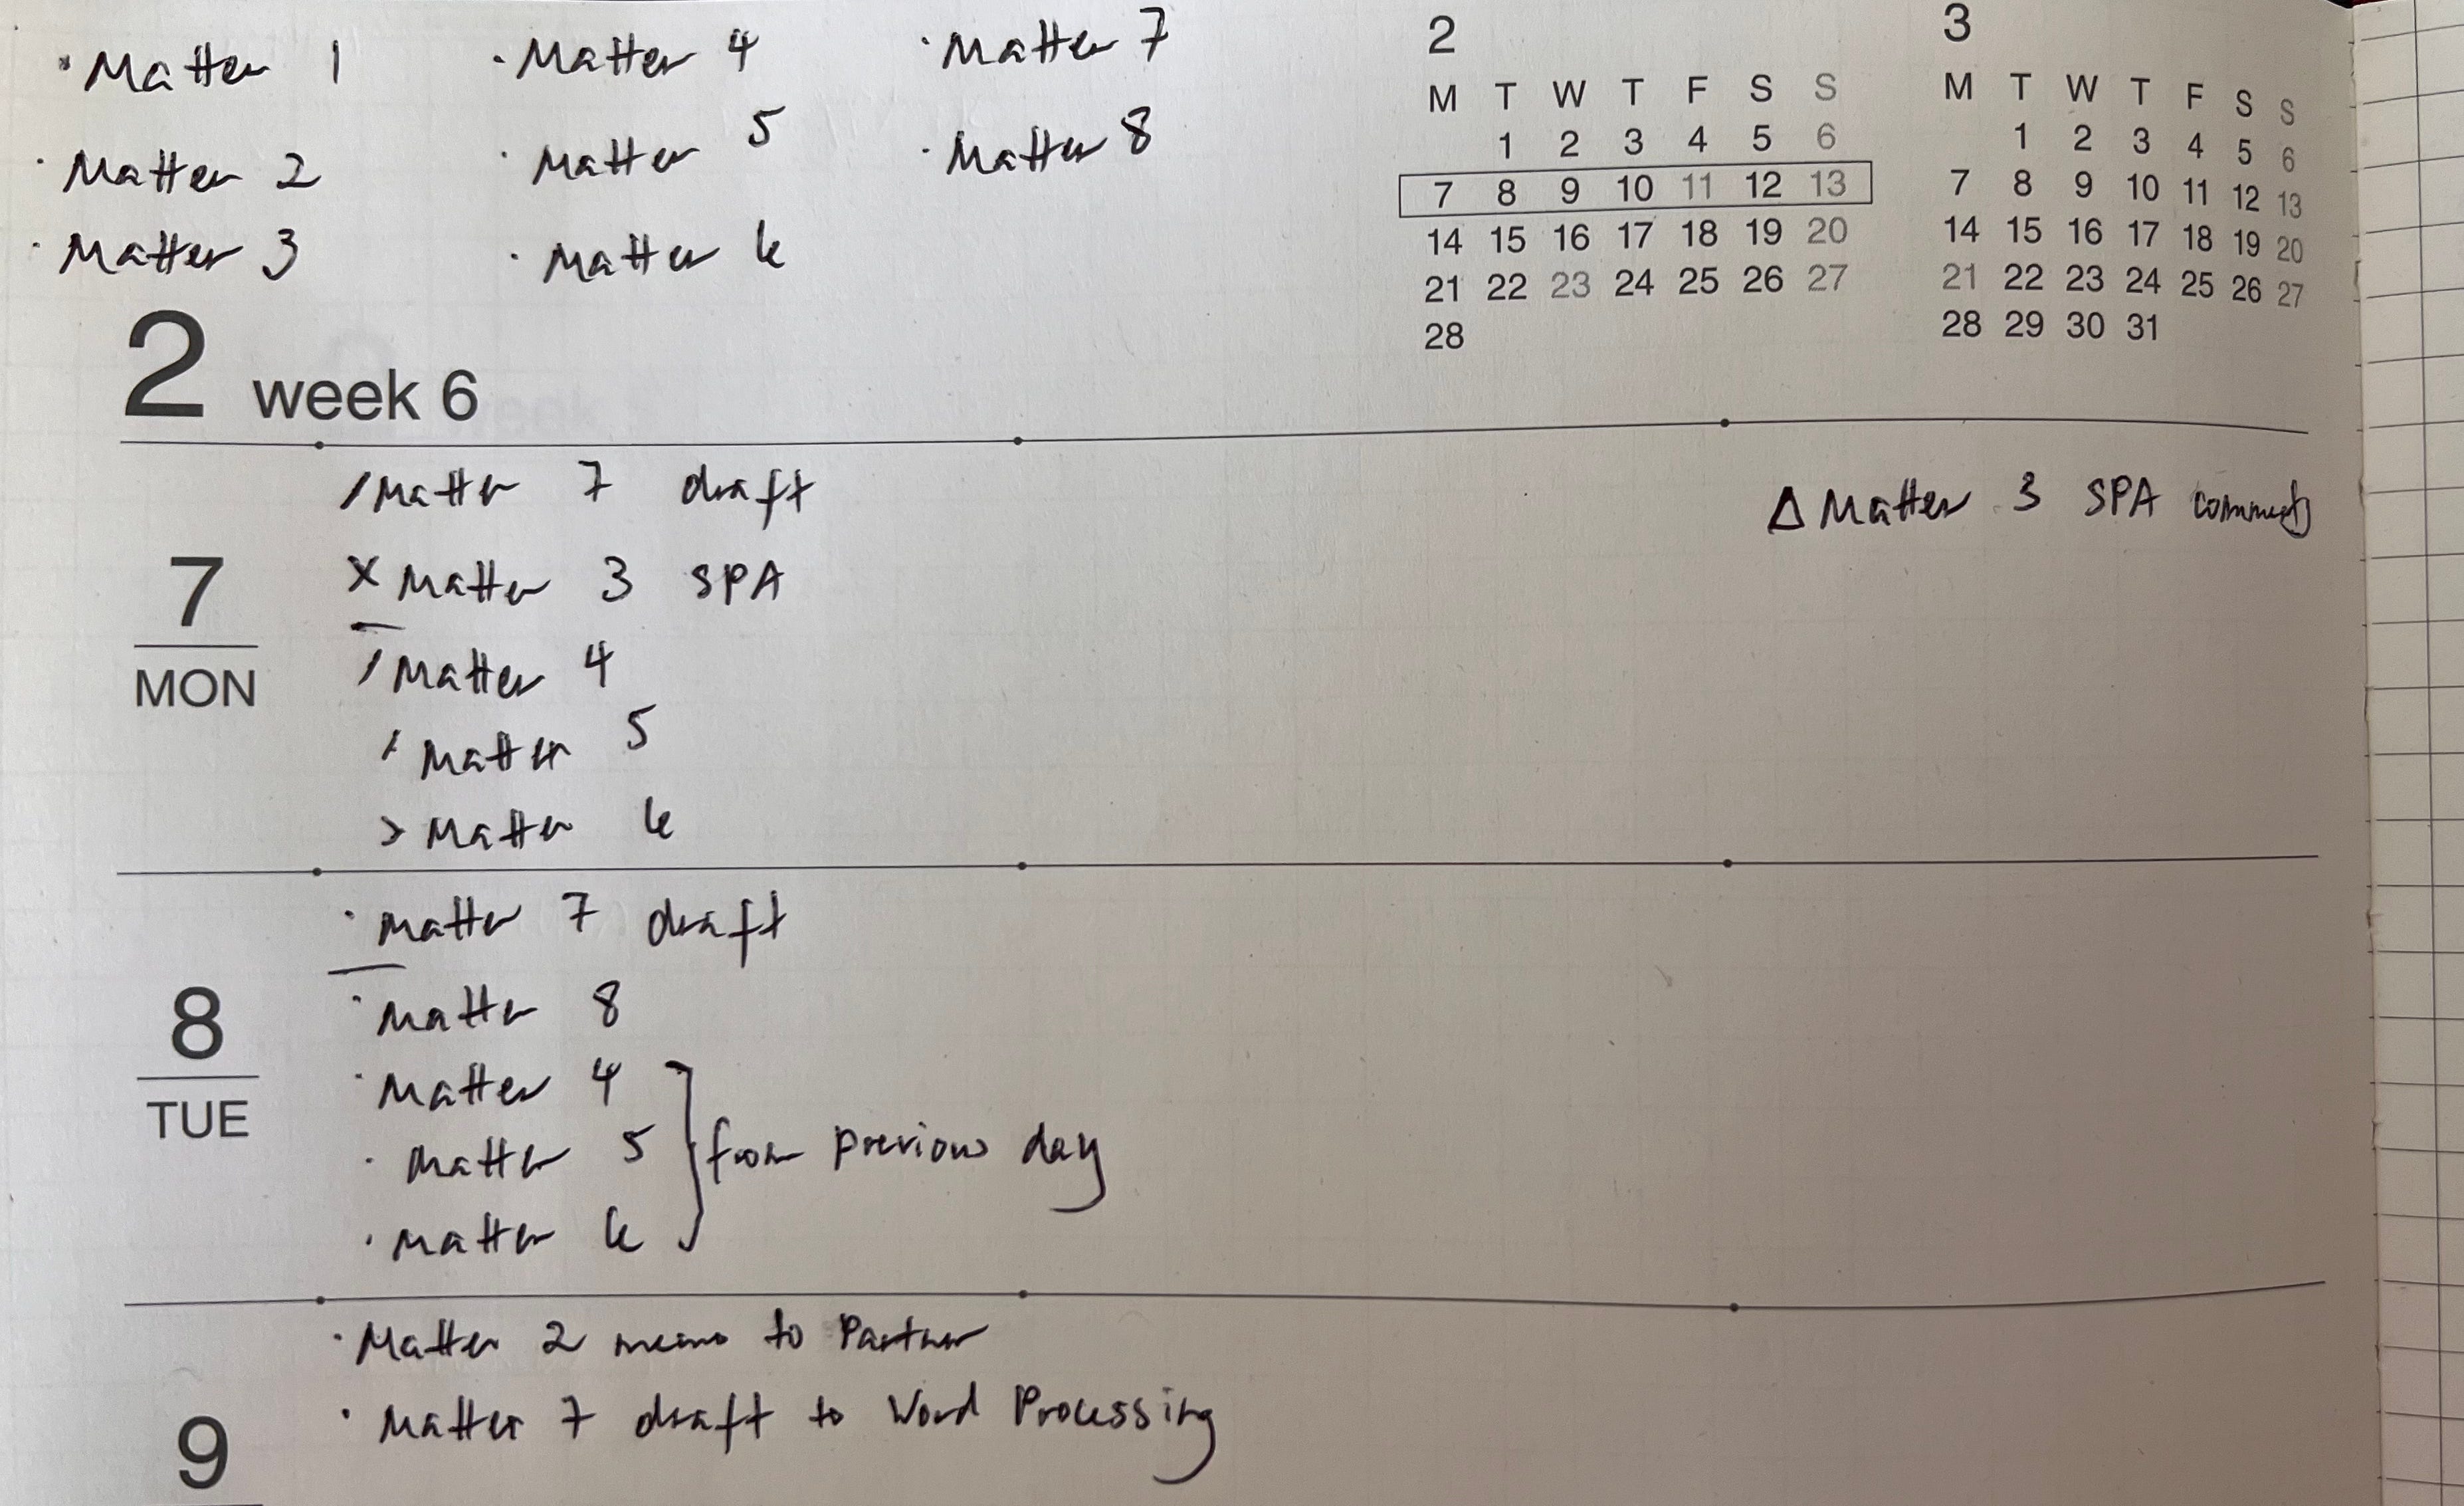 · Matter 1 · Matter 4 · Matter 7
· Matter 2 · Matter 5 · Matter 8
· Matter 3 · Matter 6
2
M T W T F S S
1 2 3 4 5 6
7 8 9 10 11 12 13
14 15 16 17 18 19 20
21 22 23 24 25 26 27
28
3
M T W T F S S
1 2 3 4 5 6
7 8 9 10 11 12 13
14 15 16 17 18 19 20
21 22 23 24 25 26 27
28 29 30 31
2 week 6
7
MON
/ Matter 7 draft
x Matter 3 SPA
/ Matter 4
/ Matter 5
> Matter 6
Δ Matter 3 SPA comments
8
TUE
· Matter 7 draft
· Matter 8
· Matter 4
· Matter 5
· Matter 6
from previous day
9
· Matter 2 memo to Partner
· Matter 7 draft to Word Processing